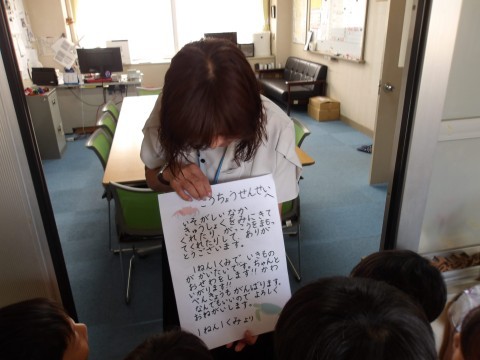 こうちょうせんせいへ
いそがしいなか
きゅうしょくをみにきて
くれたり、がっこうをまもっ
てくれたりして、ありが
とうございます。
1ねん1くみで、いきもの
がかいたいです。ちゃんと
おせわもします!!かわ
いがります!!
べんきょうもがんばります。
なんでもいいのでよろしく
おねがいします。
1ねん1くみより